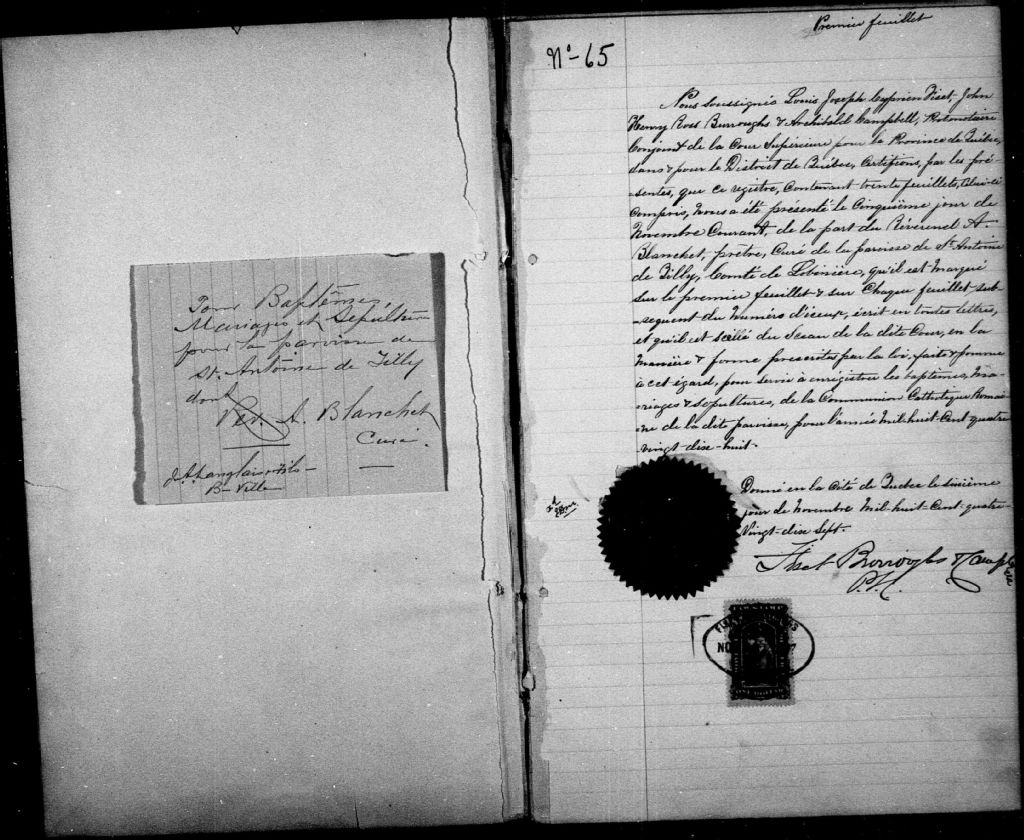 Pour Baptêmes,
Mariages et Sépultures
pour la paroisse de
St. Antoine de Tilly
dont
Rev. A. Blanchet
Curé.
B-Ville
Premier feuillet
No-65
Nous soussignés Louis Joseph Cyprien Fiset, John
Henry Ross Burroughs & Archibald Campbell, Protonotaire
Conjoint de la Cour Supérieure pour la Province de Québec,
dans & pour le District de Québec, Certifions, par les pré-
-sentes, que ce registre, Contenant trente feuillets, Celui-ci
Compris, Nous a été présenté le Cinquième jour de
Novembre Courant, de la part du Révérend A.
Blanchet, prêtre, Curé de la paroisse de St. Antoine
de Tilly, Comté de Lobinière, qu'il est Marqué
sur le premier feuillet & sur Chaque feuillet sub-
-sequent du Numéro d'iceux, écrit en toutes lettres,
et qu'il est scellé du Sceau de la dite Cour, en la
Manière & forme prescrites par la loi, faite & pourvue
à cet égard, pour servir à enrégistrer les baptêmes, Ma-
-riages & sépultures, de la Communion Catholique Romai-
-ne de la dite paroisse, pour l'année Mil-huit-Cent quatre
vingt-dix-huit.
Donné en la Cité de Québec le sixième
jour de Novembre Mil-huit-Cent-quatre-
Vingt-dix Sept.
Fiset Burroughs & Campbell
P.S.C.
LAW STAMP
NO 97
ONE DOLLAR